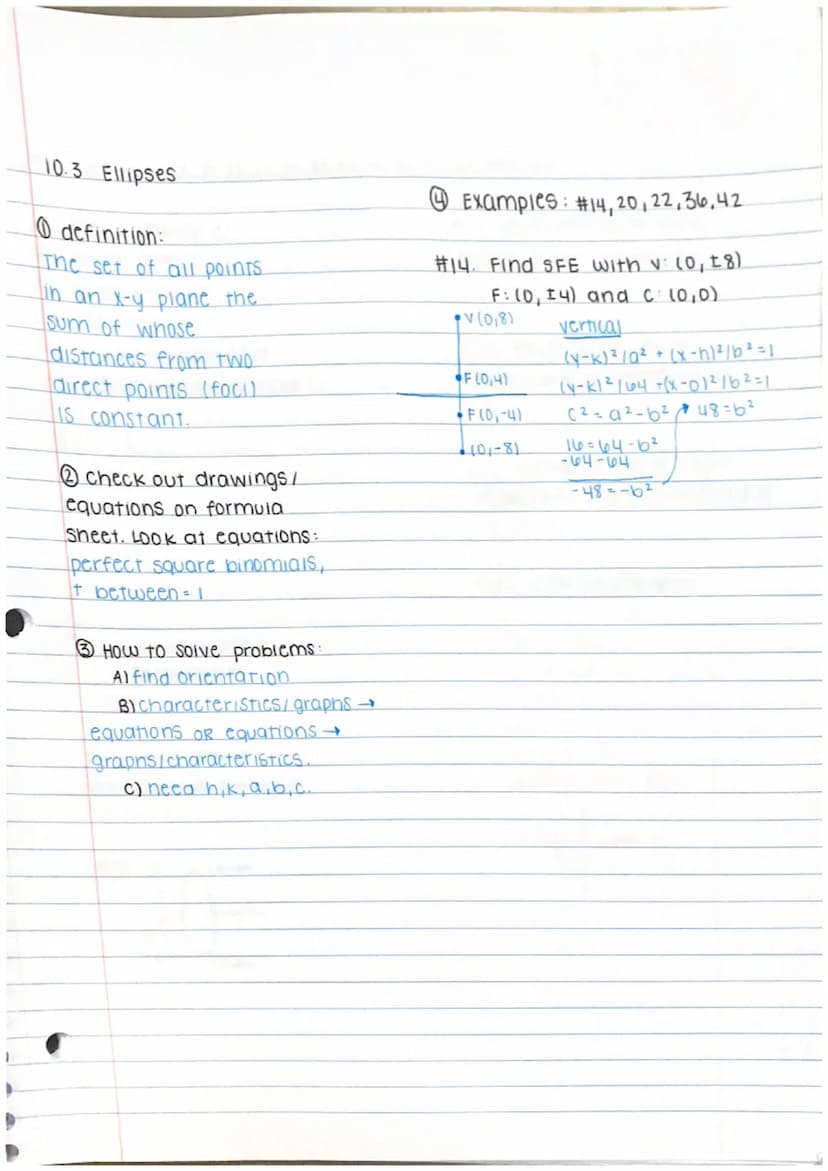 10.3 Ellipses
① definition:
The set of all points
in an x-y plane the
sum of whose
distances from two
direct points (foci)
is constant.
② Check out drawings/
equations on formula
sheet. Look at equations:
perfect square binomials,
+ between = 1
③ How to solve problems:
A) find orientation
B) characteristics/graphs →
equations OR equations →
graphs/characteristics.
C) need h,k,a,b,c.
④ Examples: #14,20,22,36,42
#14. Find SFE with v: (0,±8)
F: (0,±4) and C: (0,0)
V(0,8)
F(0,4)
F(0,-4)
(0,-8)
vertical
(y-k)²/a² + (x-h)²/b²=1
(y-k)²/64 +(x-0)²/b²=1
c²=a²-b² 48=b²
16=64-b²
-64-64
-48=-b²